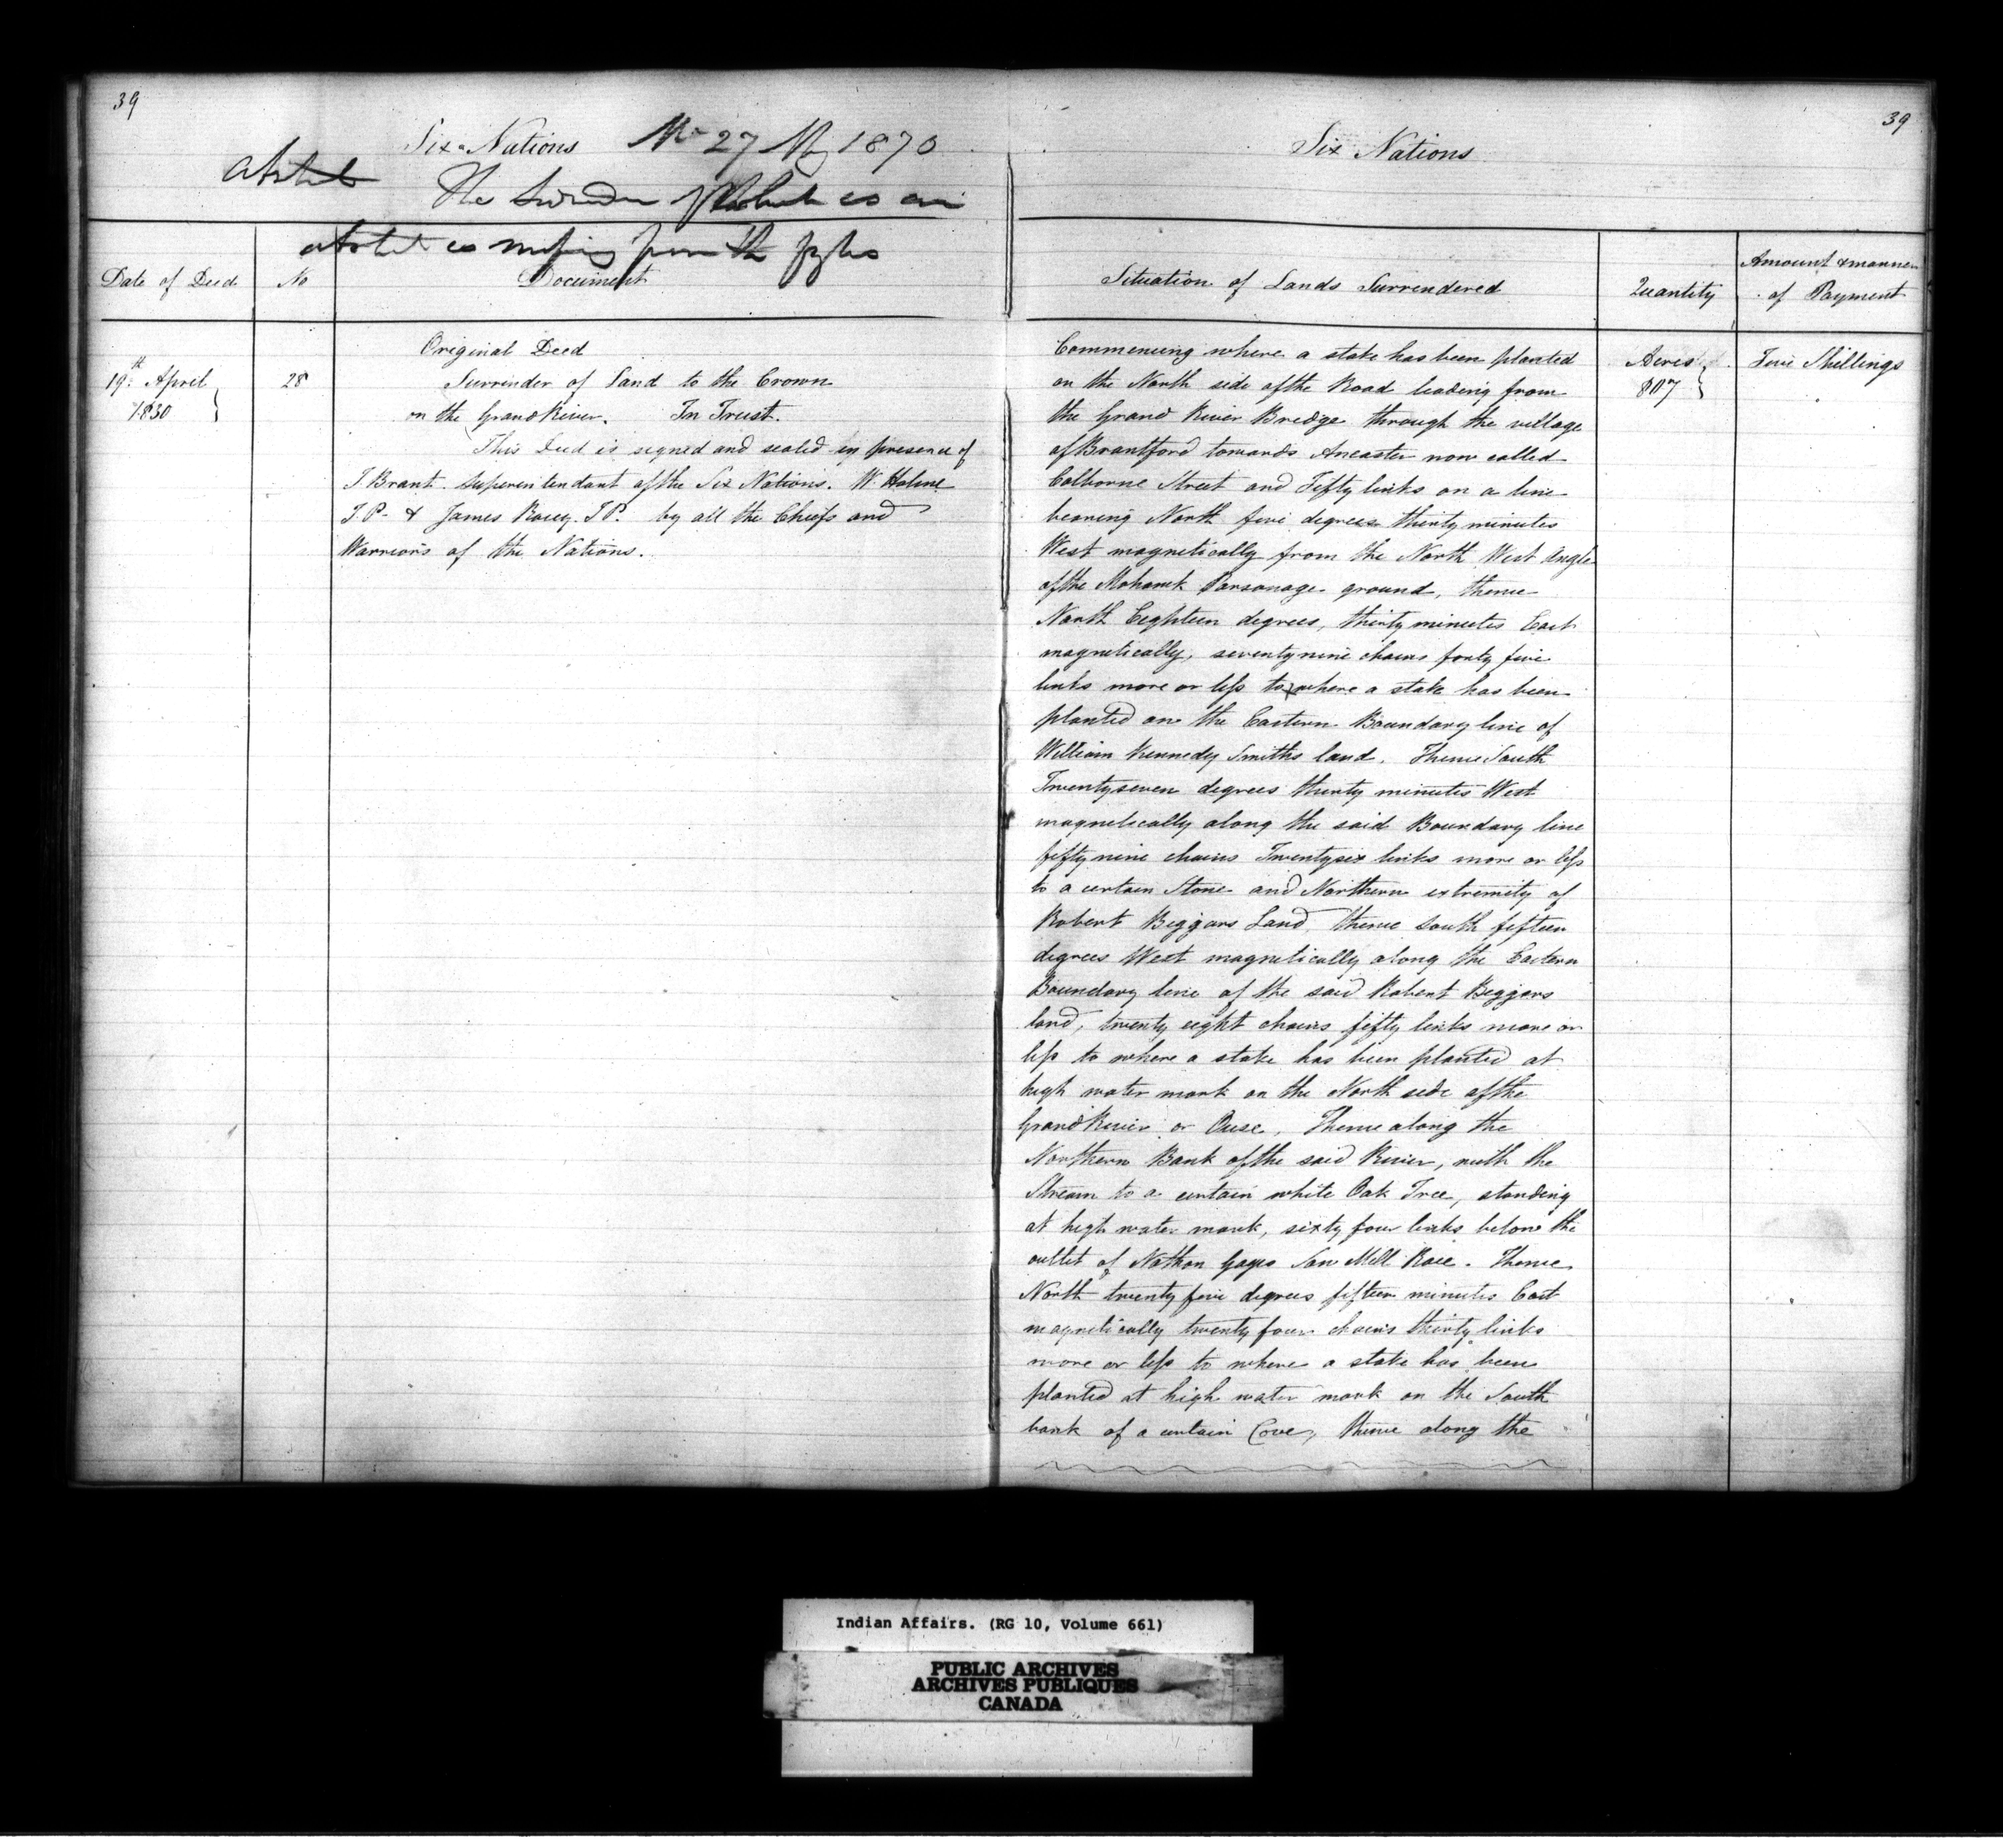 39
Six Nations 27 1870
The Surrender of which is an
abstract is missing from the
Date of Deed
No
Document
19th April
1830
28
Original Deed
Surrender of Land to the Crown
on the Grand River. In Trust.
This Deed is signed and sealed in presence of
J. Brant. Superintendant of the Six Nations. W. Holme
J.P. & James Racey. J.P. by all the Chiefs and
Warriors of the Nations.
39
Six Nations
Situation of Lands Surrendered
Quantity
Amount & manner
of Payment
Commencing where a stake has been planted
on the North side of the Road leading from
the Grand River Bridge through the village
of Brantford towards Ancaster now called
Colborne Street and Fifty links on a line
bearing North five degrees thirty minutes
West magnetically from the North West Angle
of the Mohawk Parsonage ground, thence
North Eighteen degrees, thirty minutes East
magnetically, seventy nine chains forty five
links more or less to where a stake has been
planted on the Eastern Boundary line of
William Kennedy Smiths land. Thence South
Twentyseven degrees thirty minutes West
magnetically along the said Boundary line
fifty nine chains Twentysix links more or less
to a certain Stone and Northern extremity of
Robert Biggars Land, thence south fifteen
degrees West magnetically along the Eastern
Boundary line of the said Robert Biggars
land, twenty eight chains fifty links more or
less to where a stake has been planted at
high water mark on the North side of the
Grand River or Ouse. Thence along the
Northern Bank of the said River, with the
Stream to a certain white Oak Tree, standing
at high water mark, sixty four links below the
outlet of Nathan Gages Saw Mill Race. Thence
North twenty five degrees fifteen minutes East
magnetically twenty four chains thirty links
more or less to where a stake has been
planted at high water mark on the South
bank of a certain Cove, thence along the
Acres
807
Five Shillings
Indian Affairs. (RG 10, Volume 661)
PUBLIC ARCHIVES
ARCHIVES PUBLIQUES
CANADA